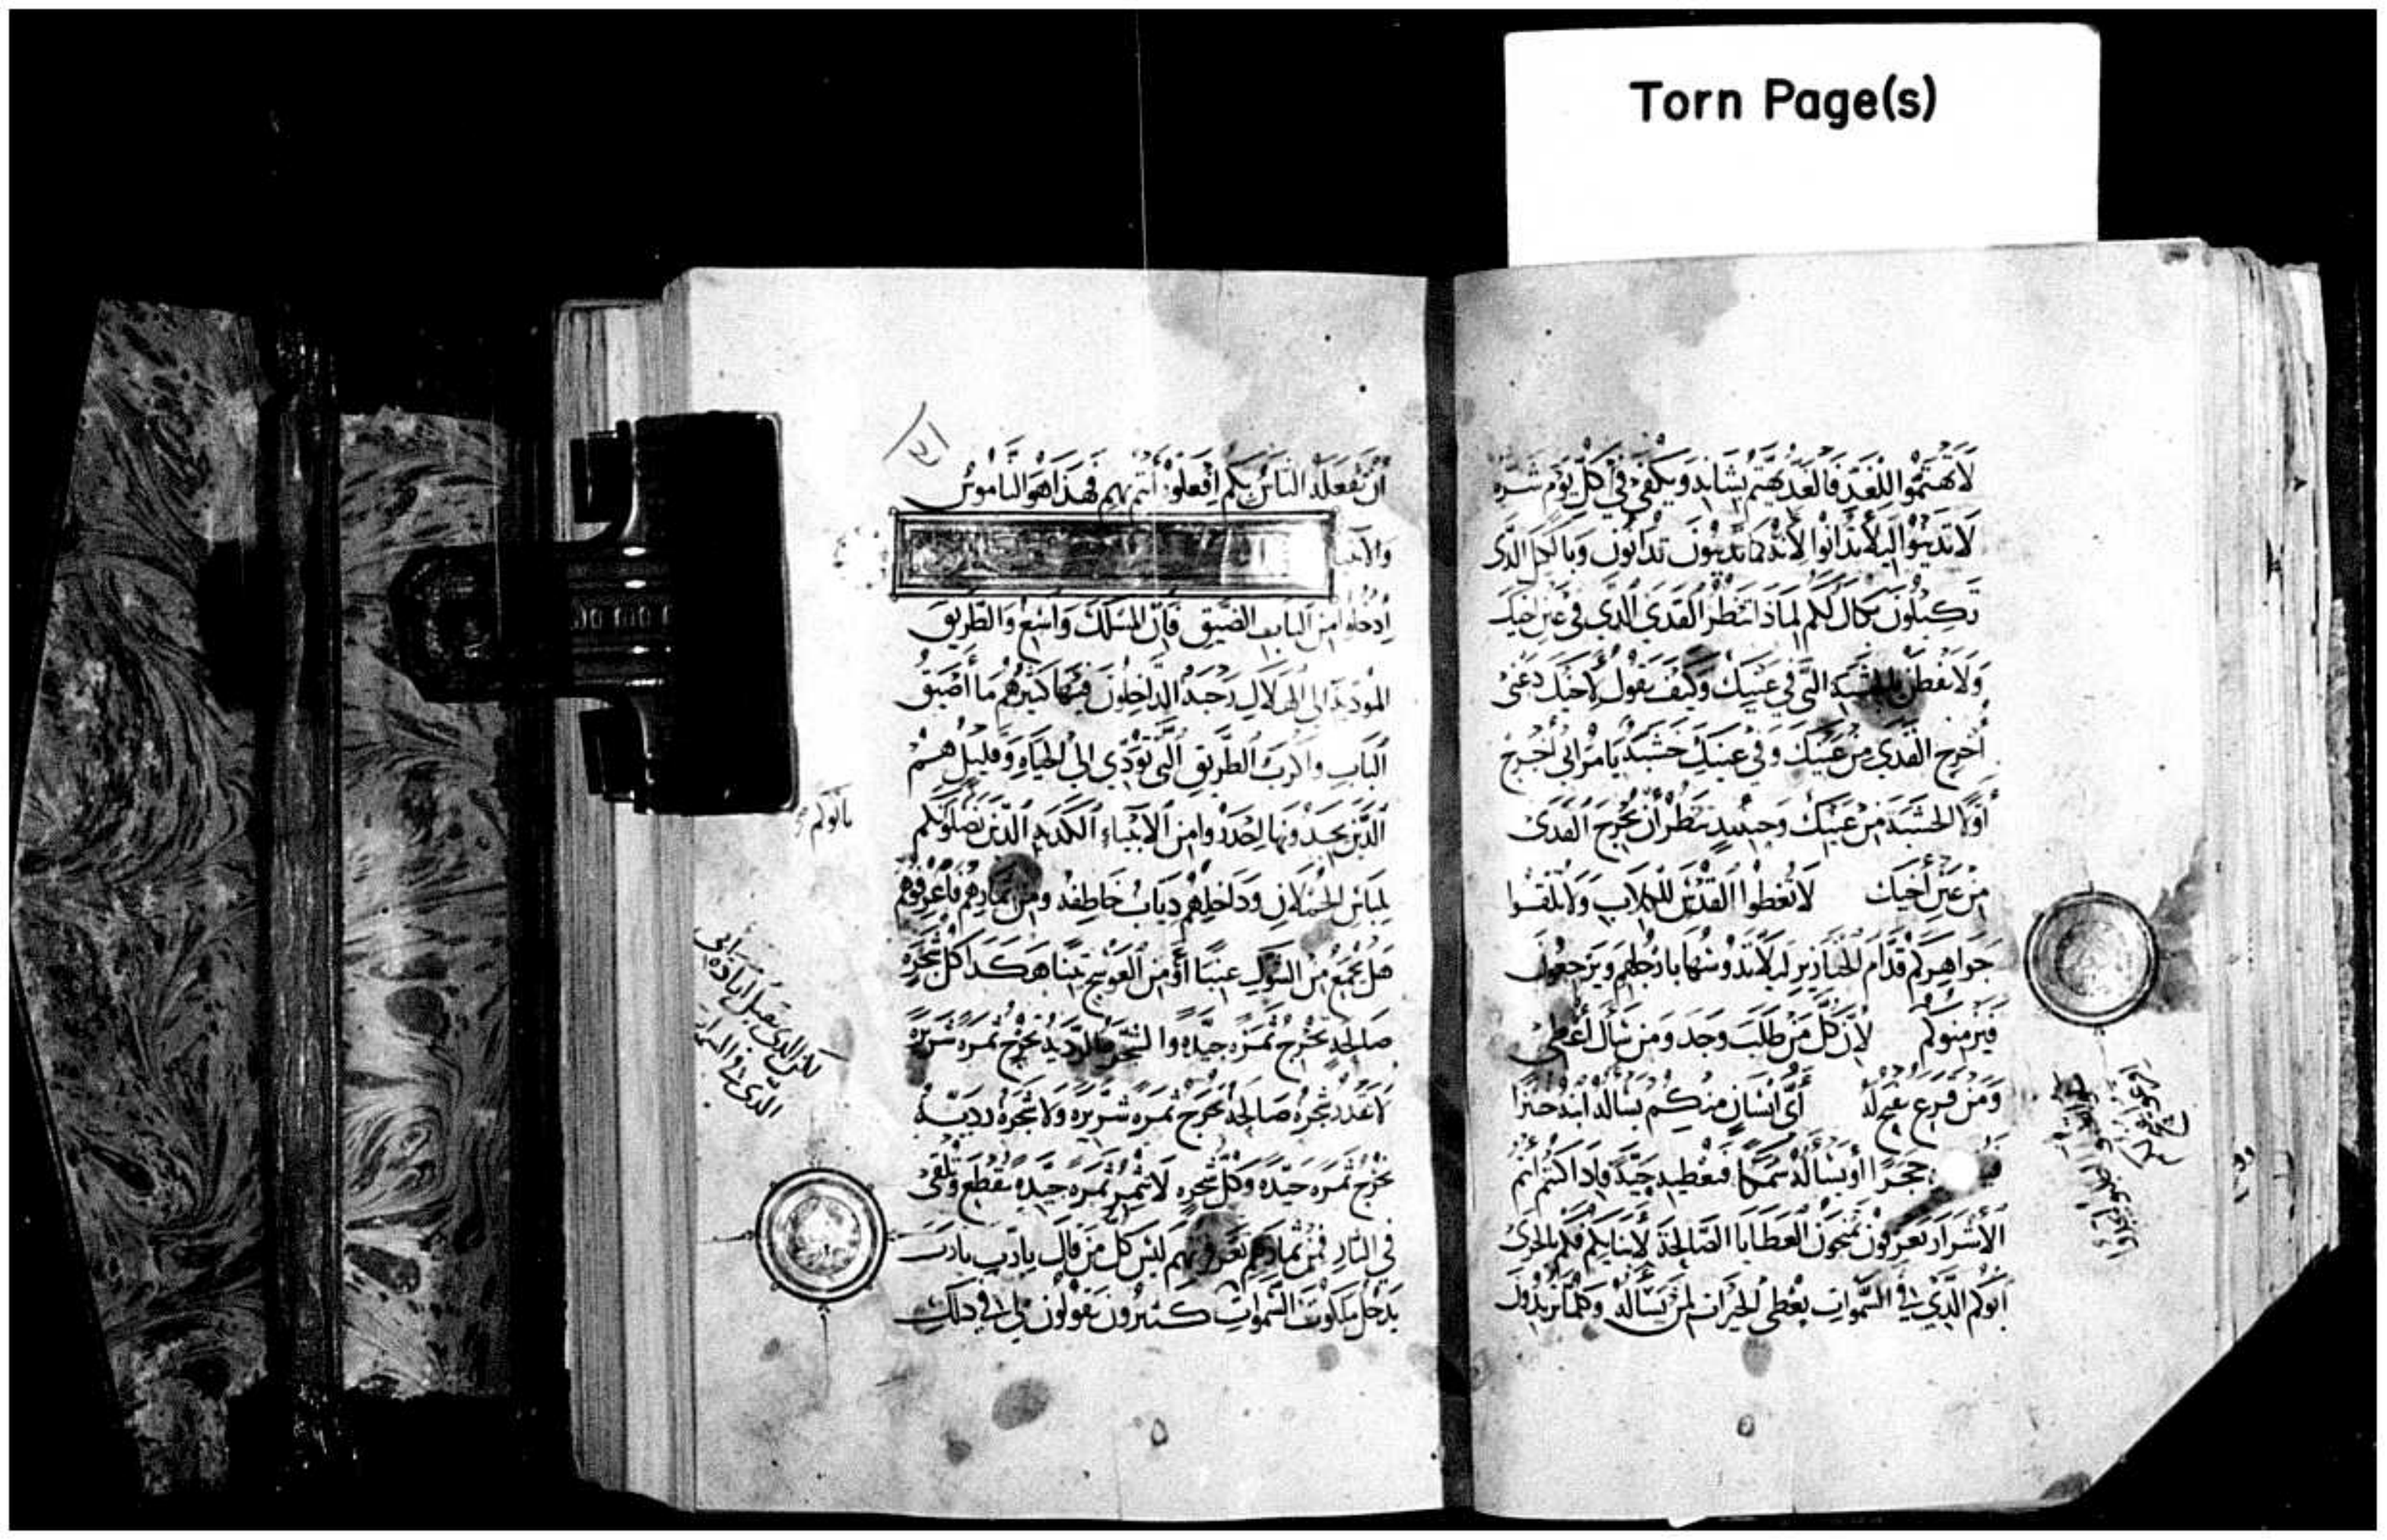 Torn Page(s)
لا تهتموا للغد فالغد يهتم بشانه ويكفي في كل يوم شره
لا تدينوا ليلا تدانوا لانه كما تدينون تدانون وبالكيل الذى
تكيلون يكال لكم لماذا تنظر القذى الذي في عين اخيك
ولا تفطن بالخشبة التي في عينيك وكيف تقول لاخيك دعنى
أخرج القذى من عينيك وفي عينيك خشبة يا مراى أخرج
أولا الخشبة من عينيك وحينيد تنظر أن تخرج القذى
من عين أخيك لا تعطوا القدس للكلاب ولا تلقوا
جواهركم قدام الخنازير ليلا تدوسها بارجلهم ويرجعون
فيرمنوكم لان كل من طلب وجد ومن سأل أعطى
ومن قرع يفتح له أي انسان منكم يساله ابنه خبزا
حجرا أو يساله سمكا فيعطيه حية فاذا كنتم انتم
الاشرار تعرفون تمنحون العطايا الصالحة لابنايكم فكم بالحرى
ابوكم الذي في السموات يعطى الخيرات لمن يساله وكلما تريدون
أن تفعله الناس بكم افعلوه أنتم بهم فهذا هو الناموس
والانبيا
ادخلوا من الباب الضيق فان المسلك واسع والطريق
المودية الى الهلاك رحبة الداخلون فيها كثير هم ما أضيق
الباب واكرب الطريق التي تؤدي الى الحياة وقليل هم
الذين يجدونها احذروا من الانبياء الكذبة الذين يأتونكم
بلباس الحملان وداخلهم دياب خاطفه ومن ثمارهم فاعرفوهم
هل يجمع من الشوك عنبا أو من العوسج تينا هكذا كل شجره
صالحة تخرج ثمره جيده والشجره الرديه تخرج ثمره شريره
لا تقدر شجره صالحة تخرج ثمره شريره ولا شجره رديـه
تخرج ثمره جيده وكل شجره لا تثمر ثمره جيده تقطع وتلقى
في النار فمن ثمارهم تعرفونهم ليس كل من قال يارب يارب
يدخل ملكوت السموات كثيرون يقولون لي في ذلك
لكن الذى يعمل اراده ابى
الذى في السموات